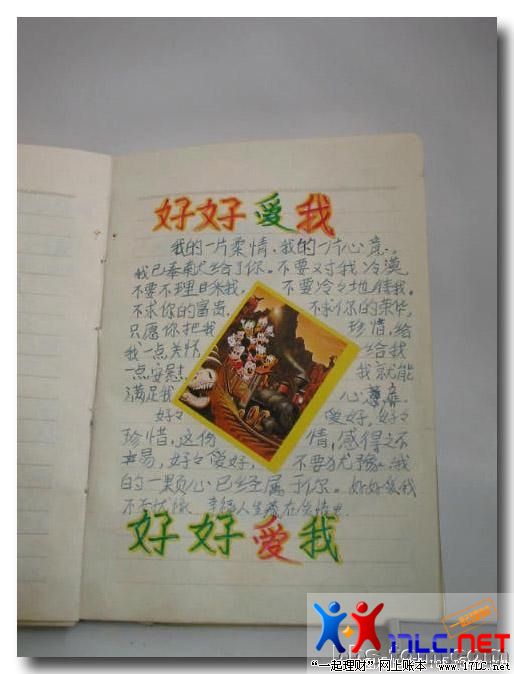 好好爱我
我的一片柔情、我的一片心意。
我已奉献给了你。不要对我冷漠
不要不理日采我, 不要冷々地待我。
不求你的富贵, 不求你的荣华,
只愿你把我 珍惜,给
我一点关怀 给我
一点安慰 我就能
满足我 心意
好々 爱好,好々
珍惜,这份 情,感得之不
易,好々爱好, 不要犹豫,我
的一颗心已经属于你。好好爱我
不要犹豫 幸福人生藏在
好好爱我
17LC.NET
"一起理财"网上账本 www.17LC.NET